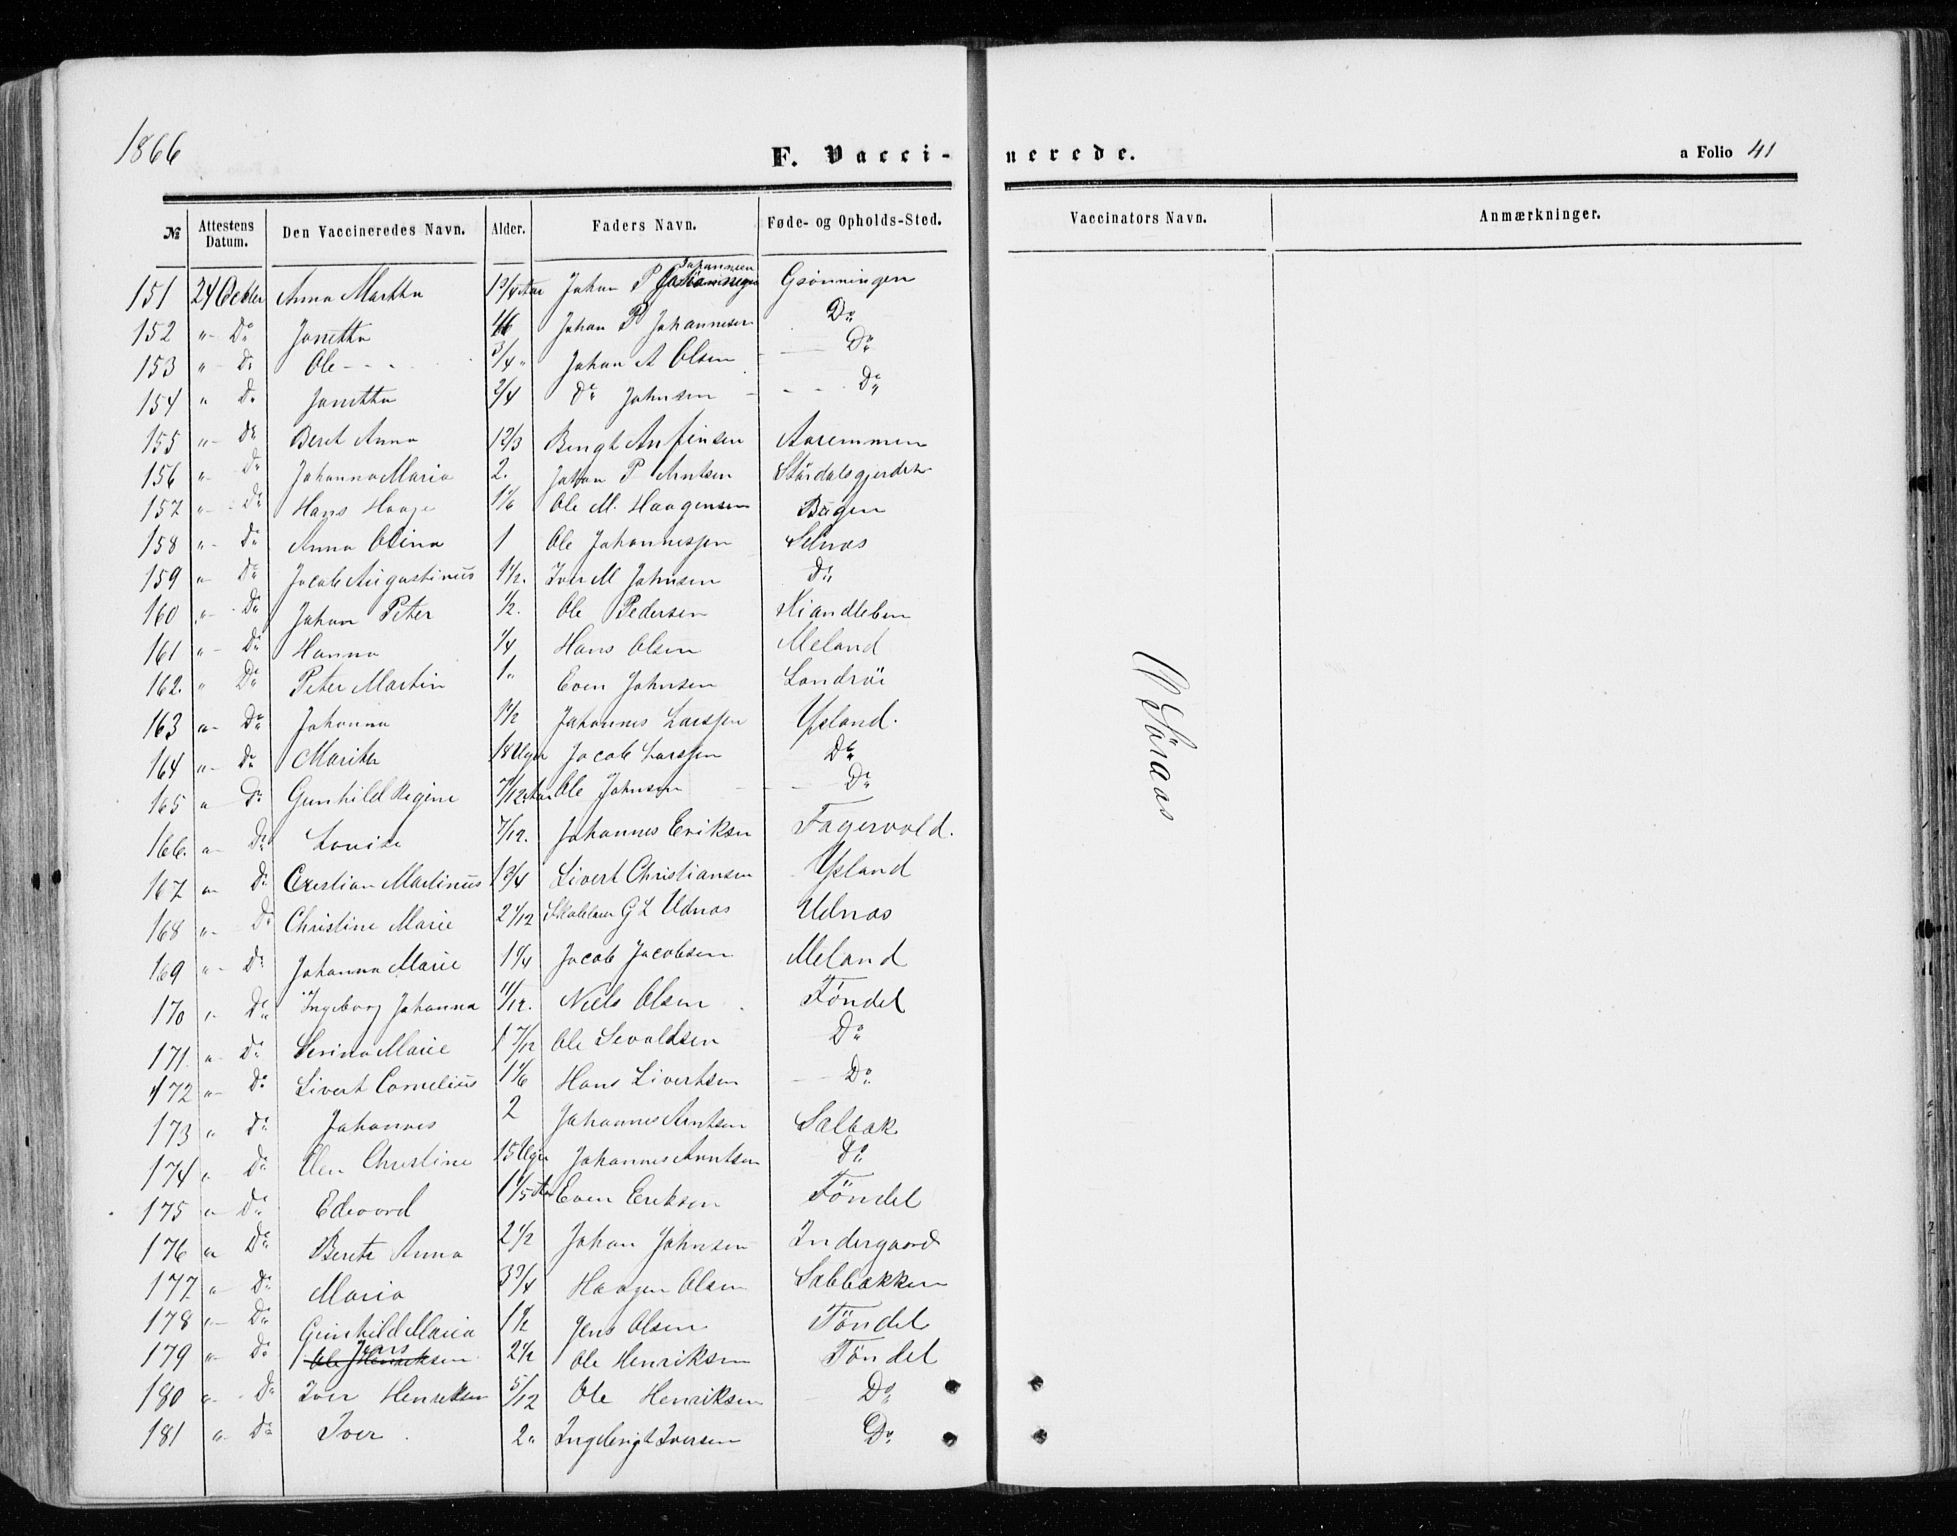 1866
F. Vacci-nerede.
a Folio 41
№ Attestens Datum. Den Vaccineredes Navn. Alder. Faders Navn. Føde- og Opholds-Sted. Vaccinators Navn. Anmærkninger.
151 24 Octbr Anna Martha 1 3/4 Aar Johan P Johannesen Grønningen
152 " Do Janetta Johan P Johannesen Do
153 " Do Ole 3/4 " Johan A Olsen Do
154 " Do Janetta 2/4 Do Johnsen Do
155 " Do Beret Anna 1 2/3 Bengt Anfinsen Aaremmen
156 " Do Johanna Maria 2. Johan P Arntsen Stördalsgjerdet
157 " Do Hans Haage 1 1/6 Ole M. Haagensen Bugen
158 " Do Anna Olina 1 Ole Johannessen Selnæs
159 " Do Jacob Augustinus 1 1/2. Iver M Johnsen Do
160 " Do Johan Peter 1/2. Ole Pedersen
161 " Do Hanna 1/4 Hans Olsen Meland
162. " Do Peter Martin 1 " Even Johnsen Landröe
163 " Do Johanna 1 1/2 Johannes Larssen Ysland.
164 " Do Marith 18 Uger Jacob Larssen Do
165 " Do Gunhild Regine 7/12 Aar Ole Johnsen Do
166. " Do Lovise 7/12. Johannes Eriksen Fagervold.
167 " Do Cristian Martinus 1 3/4 Sivert Christiansen Ysland
168 " Do Christine Marie 2 1/12 G L Udnæs Udnæs
169 " Do Johanna Marie 1 1/4 Jacob Jacobsen Meland
170 " Do Ingeborg Johanna 11/12. Niels Olsen Töndel
171 " Do Serina Marie 1 7/12 Ole Sevaldsen Do
172 " Do Sivert Cornelius 1 1/6 Hans Sivertsen Do
173 " Do Johannes 2 Johannes Arntsen Salbæk
174 " Do Christine 15 Uger Johannes Arntsen Do
175 " Do Edevard 1 1/5 Aar Even Eriksen Töndel
176 " Do Berete Anna 2 1/2 Johan Johnsen Indergaard
177 " Do Maria 3 3/4 Haagen Olsen Salbækken
178 " Do Gunhild Maria 1 1/2 Jens Olsen Töndel
179 " Do Jens Ole Henriksen 2 1/2 Ole Henriksen Töndel
180 " Do Iver Henriksen 5/12 Ole Henriksen Do
181 " Do Iver 2 " Ingebrigt Iversen Do
Söraas